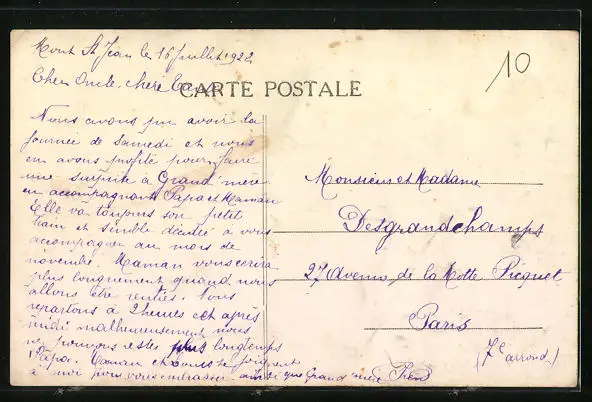 Mont St Jean le 16 Juillet 1922
Cher Oncle, chère Tante
CARTE POSTALE
10
Nous avons pu avoir la
journée de samedi et nous
en avons profité pour faire
une surprise à Grand'mère
en accompagnant Papa et Maman
Elle va toujours son petit
train et semble décidée à vous
accompagner au mois de
novembre. Maman vous écrira
plus longuement quand nous
allons être rentrés. Nous
repartons à 2 heures cet après
midi malheureusement nous
ne pouvons rester plus longtemps
Papa, Maman et se joignent
à moi pour vous embrasser ainsi que Grand'mère
Monsieur et Madame
Desgrandchamps
27 Avenue de la Motte Picquet
Paris
(7e arrond)